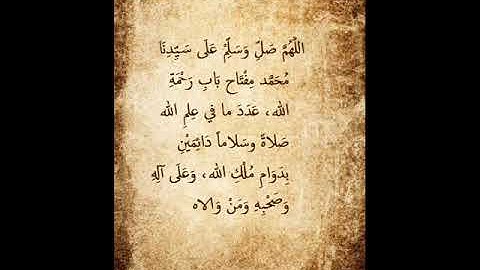 اللّهُمَّ صَلِّ وَسَلِّمْ عَلَى سَيِّدِنَا
مُحَمَّد مِفْتَاح بَابِ رَحْمَةِ
الله، عَدَدَ ما في عِلمِ الله
صَلاةً وسَلاماً دَائِمَيْنِ
بِدَوَامِ مُلْكِ الله، وَعَلَى آلِهِ
وَصَحْبِهِ وَمَنْ وَالاه